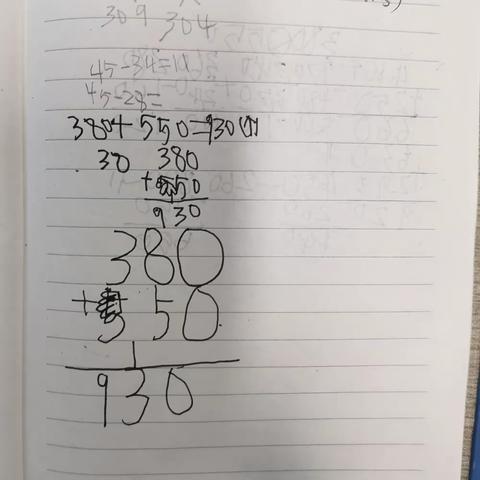 309 304
45-34=11
45-28=
380+550=930(个)
30 380
+550
930
380
+550
1
930